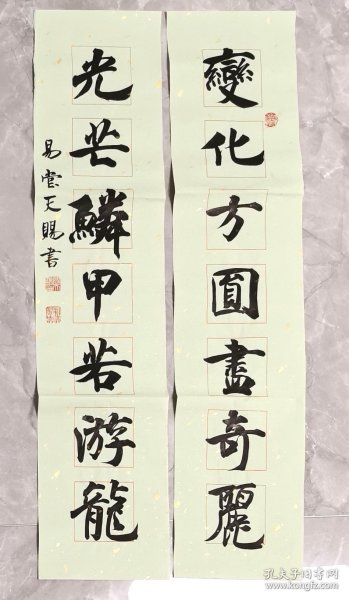 變化方圓畫奇麗
光芒鱗甲若游龍
易堂天賜書
孔夫子旧书网